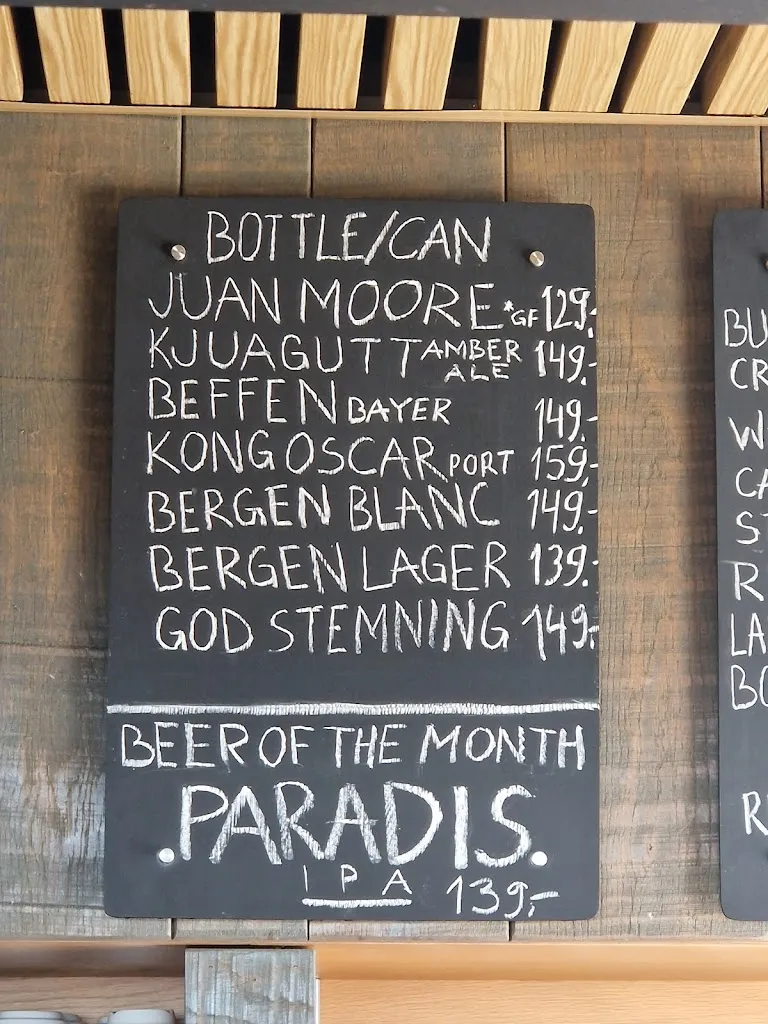 BOTTLE/CAN
JUAN MOORE *GF 129,-
KJUAGUTT AMBER ALE 149,-
BEFFEN BAYER 149,-
KONG OSCAR PORT 159,-
BERGEN BLANC 149,-
BERGEN LAGER 139,-
GOD STEMNING 149,-
BEER OF THE MONTH
.PARADIS.
IPA 139,-